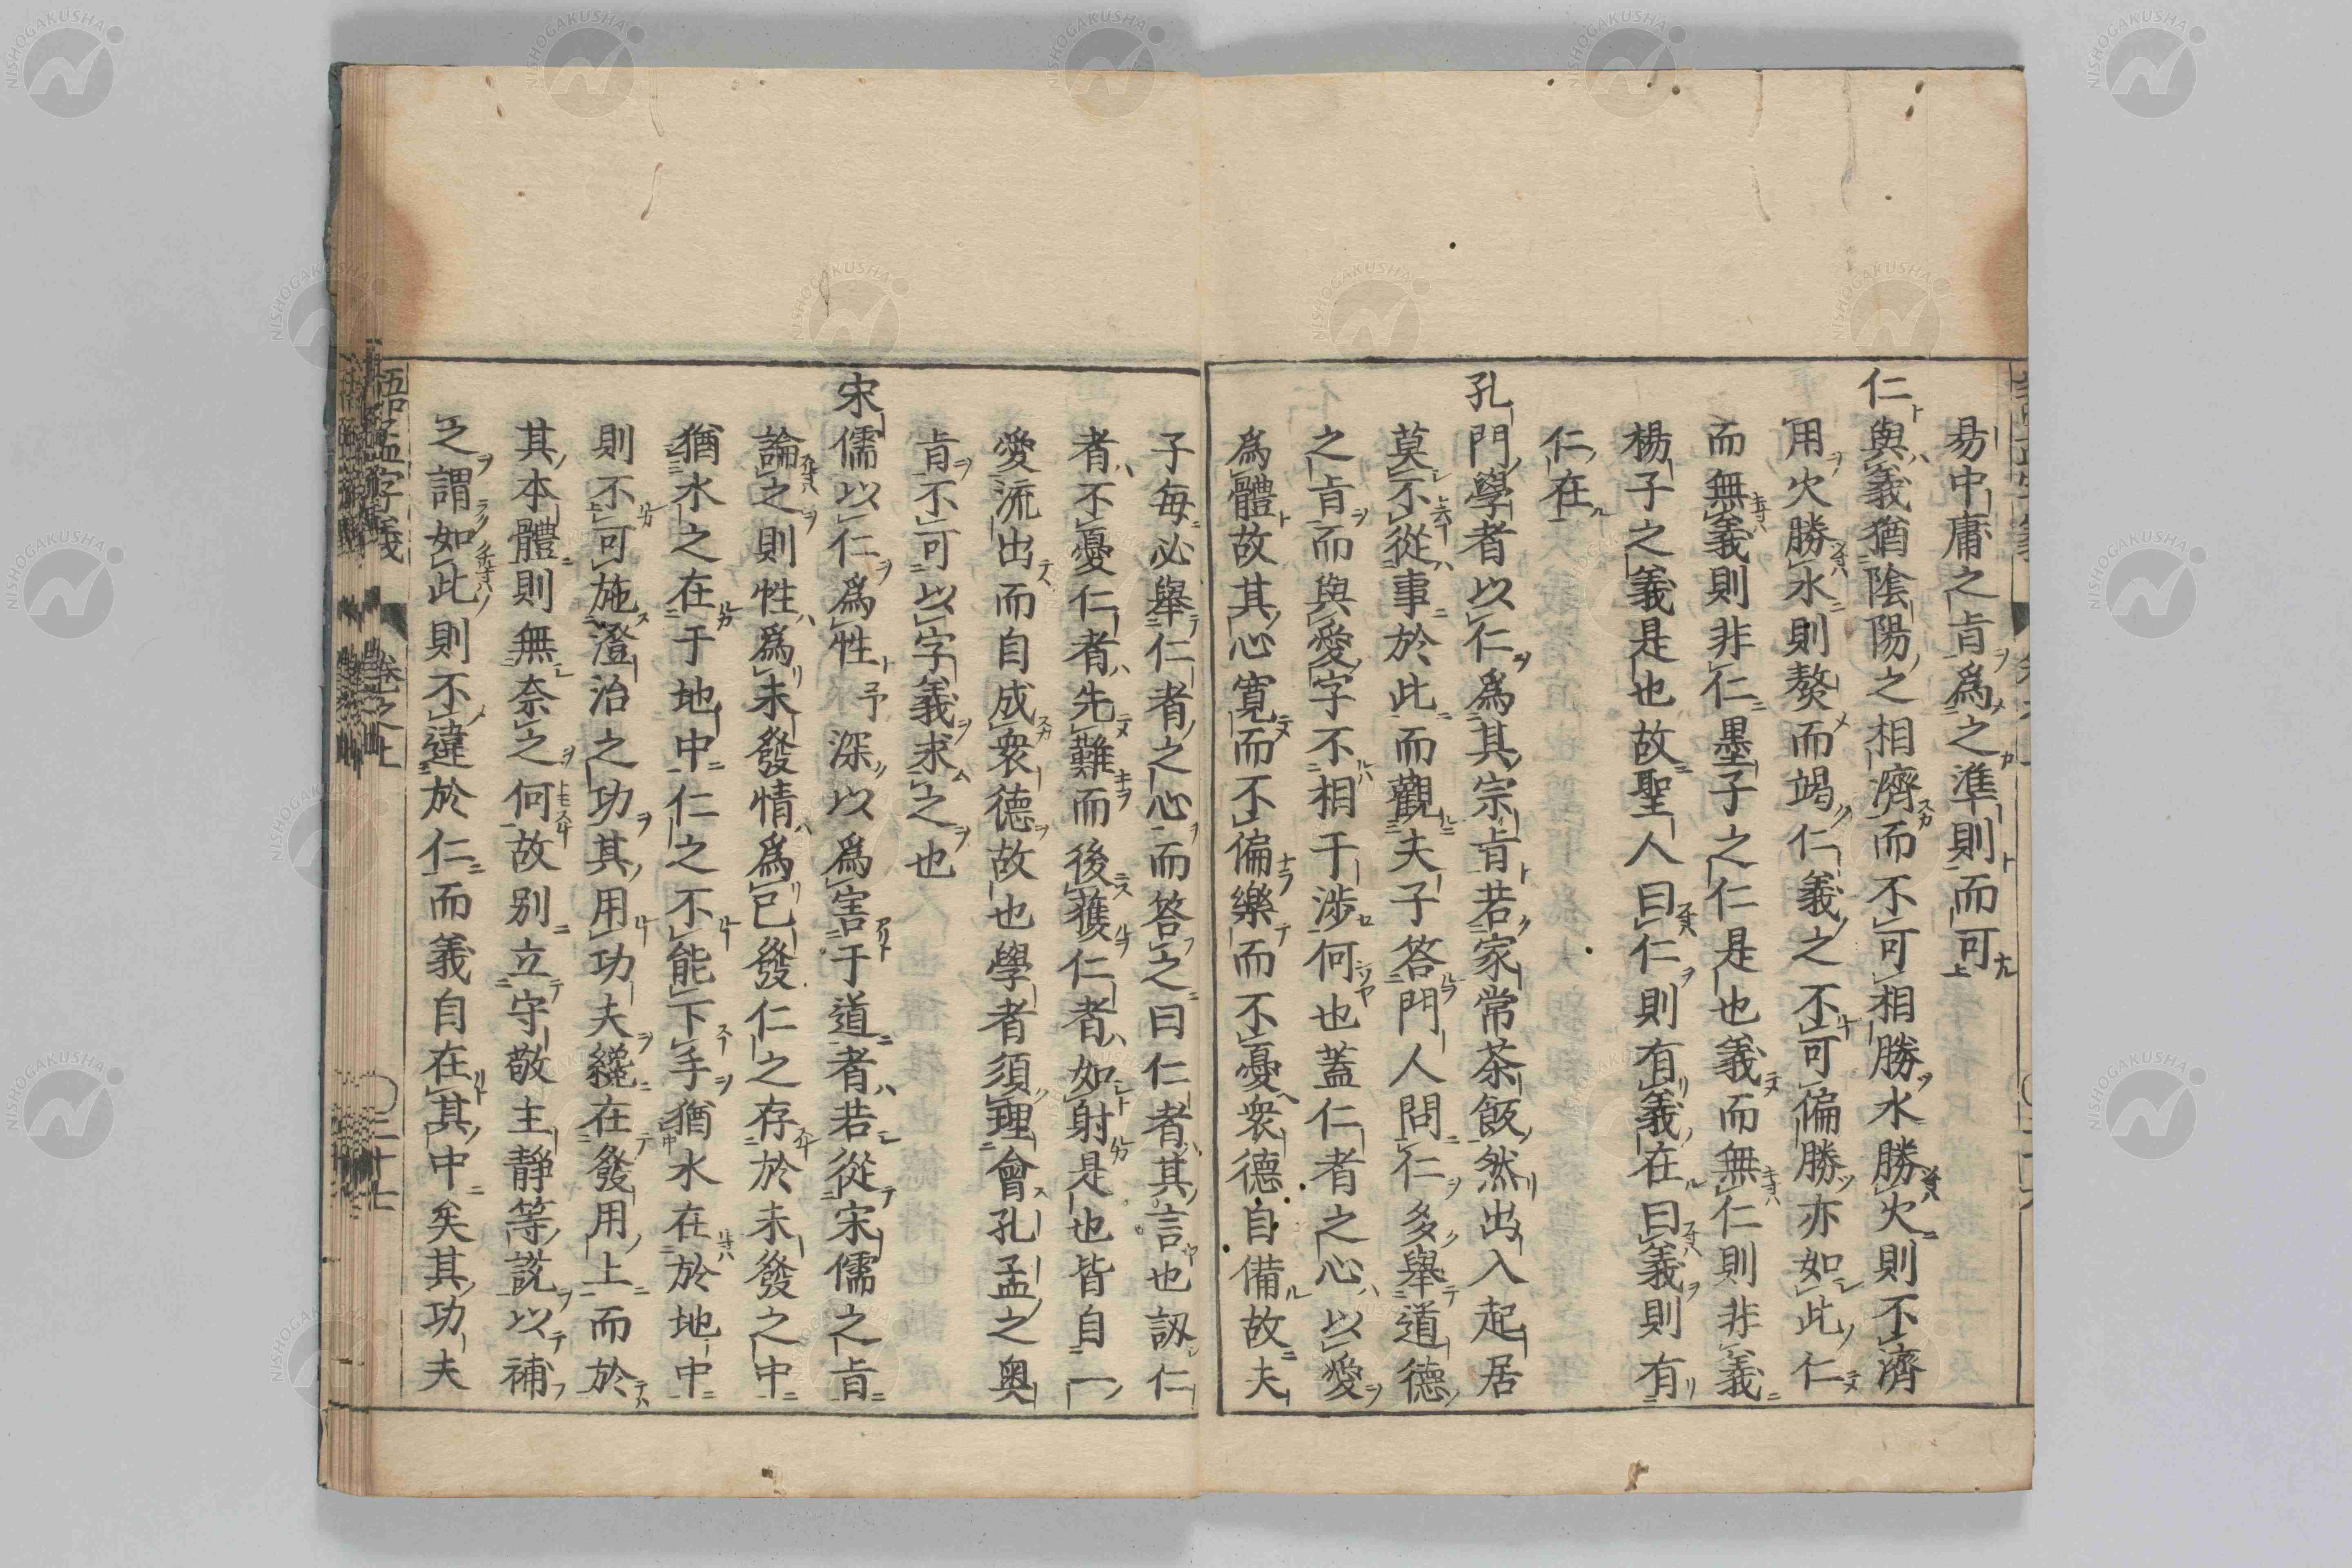 易中庸之肯爲之準則而可
仁與義猶陰陽之相濟而不可相勝水勝火則不濟
用火勝水則熬而竭仁義之不可偏勝亦如此仁
而無義則非仁墨子之仁是也義而無仁則非義
楊子之義是也故聖人曰仁則有義在曰義則有
仁在
孔門學者以仁爲其宗肯若家常茶飯然出入起居
莫不從事於此而觀夫子答門人問仁多舉道德
之肯而與愛字不相干涉何也蓋仁者之心以愛
爲體故其心寛而不偏樂而不憂衆德自備故夫
子毎必舉仁者之心而答之曰仁者其言也訒仁
者不憂仁者先難而後獲仁者如射是也皆自一
愛流出而自成衆德故也學者須理會孔孟之奥
肯不可以字義求之也
宋儒以仁爲性予深以爲害于道者若從宋儒之肯
論之則性爲未發情爲已發仁之存於未發之中
猶水之在于地中仁之不能下手猶水在於地中
則不可施澄治之功其用功夫纔在發用上而於
其本體則無奈之何故別立守敬主静等説以補
之謂如此則不違於仁而義自在其中矣其功夫
語孟字義 卷之上 三十七
NISHOGAKUSHA